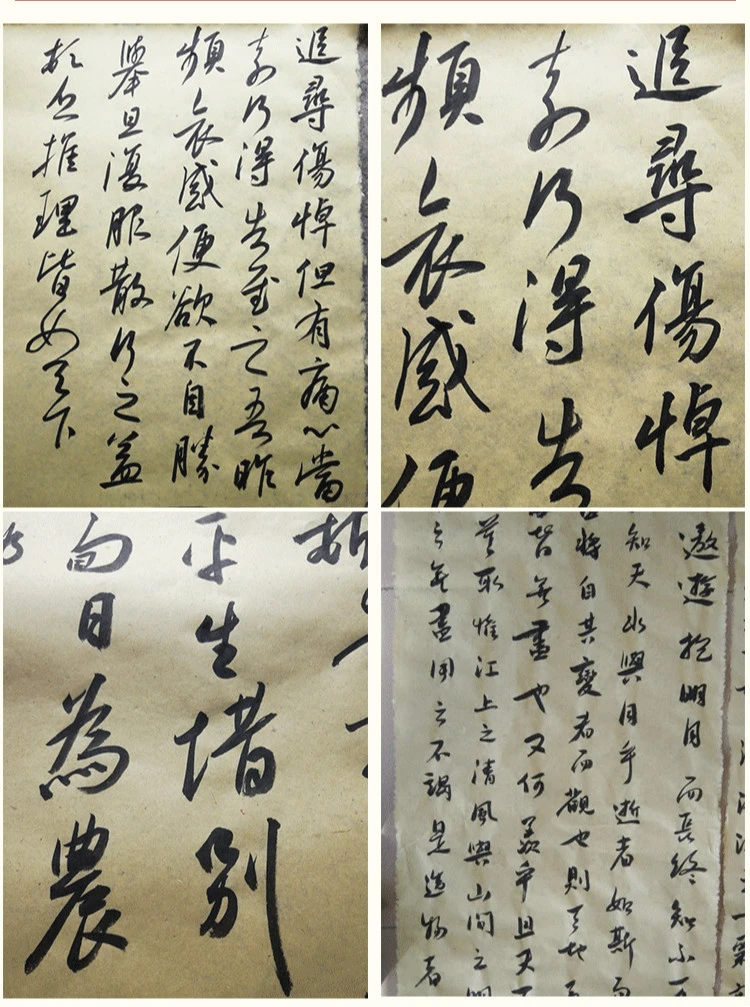 追尋傷悼但有痛心當
奈何得告慰之吾昨
頻哀感便欲不自勝
舉旦復服散行之益
乏推理皆如足下
追尋傷悼
奈何得告
頻哀感便
平生惜別
日為農
遨遊抱明月而長終知不可
知夫水與月乎逝者如斯而
將自其變者而觀也則天地
皆無盡也又何羨乎且夫天
莫取惟江上之清風與山間之明
之無盡用之不竭是造物者